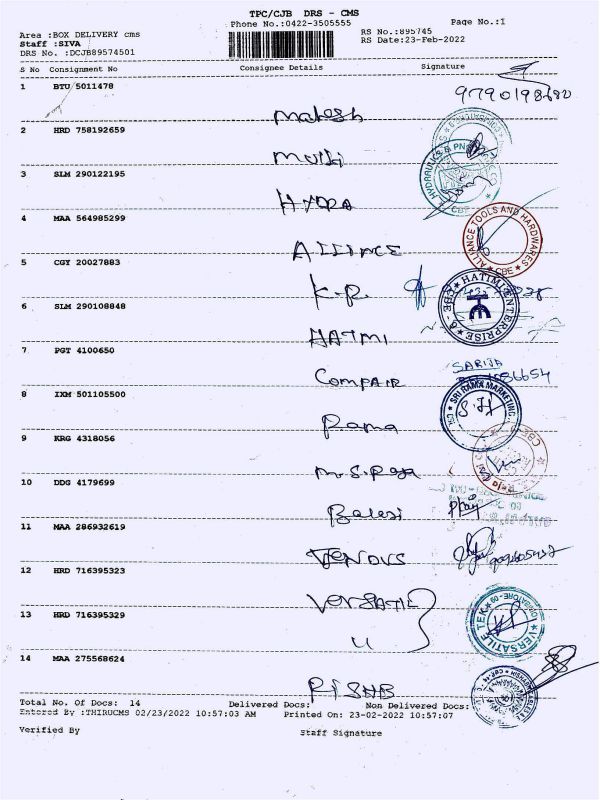 TPC/CJB DRS - CMS
Phone No.:0422-3505555
Page No.:1
RS No.:895745
Area :BOX DELIVERY cms
RS Date:23-Feb-2022
Staff :SIVA
DRS No. :DCJB89574501
S No Consignment No Consignee Details Signature
1 BTU 5011478
Mahesh
2 HRD 758192659
3 SLM 290122195
HYDRA
4 MAA 564985299
ALLIANCE
ALLIANCE TOOLS AND HARDWARES
CBE
5 CGY 20027883
K.R
6 SLM 290108848
HATIMI ENTERPRISE
HATMI
7 PGT 4100650
SARIJA
COMPAIR
8 IXM 501105500
SRI RAMA MARKETING
Rama
9 KRG 4318056
M.S. Raja
10 DDG 4179699
Balesi
11 MAA 286932619
VENOUS
12 HRD 716395323
VERSATILE
13 HRD 716395329
VERSATILE TEK
14 MAA 275568624
RISHB
Total No. Of Docs: 14 Delivered Docs: Non Delivered Docs:
Entered By :THIRUCMS 02/23/2022 10:57:03 AM Printed On: 23-02-2022 10:57:07
Verified By Staff Signature